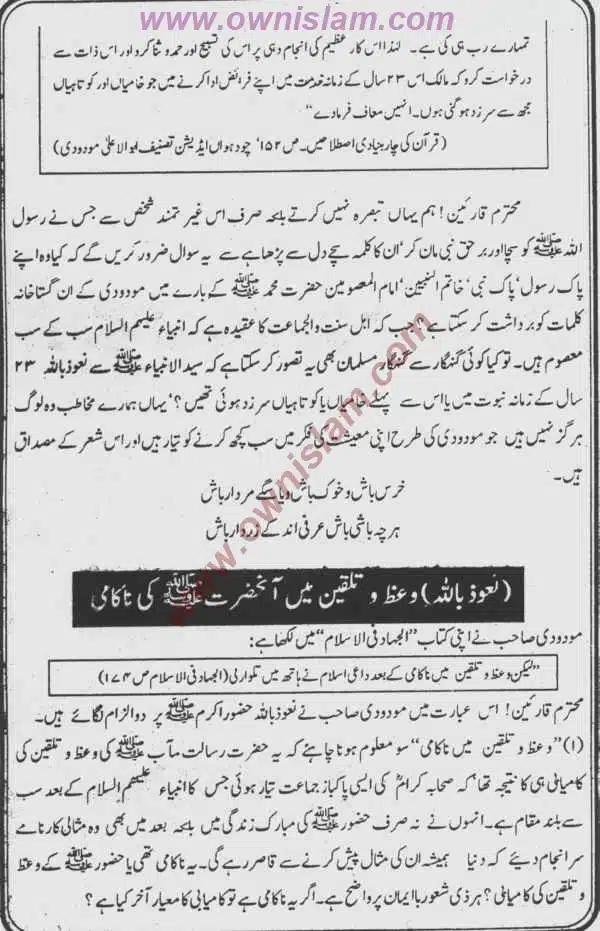 www.ownislam.com
تمہارے رب ہی کی ہے۔ لہٰذا اس کار عظیم کی انجام دہی پر اس کی تسبیح اور حمد و ثنا کرو اور اس ذات سے
درخواست کرو کہ مالک اس ۲۳ سال کے زمانہ خدمت میں اپنے فرائض ادا کرنے میں جو خامیاں اور کوتاہیاں
مجھ سے سرزد ہو گئی ہوں۔ انہیں معاف فرما دے“
(قرآن کی چار بنیادی اصطلاحیں۔ ص ۱۵۲‘ چودہواں ایڈیشن تصنیف ابوالاعلیٰ مودودی)
محترم قارئین! ہم یہاں تبصرہ نہیں کرتے بلکہ صرف اس غیرتمند شخص سے جس نے رسول
اللہ ﷺ کو سچا اور برحق نبی مان کر‘ ان کا کلمہ سچے دل سے پڑھا ہے سے یہ سوال ضرور کریں گے کہ کیا وہ اپنے
پاک رسول‘ پاک نبی‘ خاتم النبیین‘ امام المعصومین حضرت محمد ﷺ کے بارے میں مودودی کے ان گستاخانہ
کلمات کو برداشت کر سکتا ہے؟ جب کہ اہل سنت والجماعت کا عقیدہ ہے کہ انبیاء علیہم السلام سب کے سب
معصوم ہیں۔ تو کیا کوئی گنہگار سے گنہگار مسلمان بھی یہ تصور کر سکتا ہے کہ سید الانبیاء ﷺ سے نعوذ باللہ ۲۳
سال کے زمانہ نبوت میں یا اس سے پہلے خامیاں یا کوتاہیاں سرزد ہوئی تھیں؟‘ یہاں ہمارے مخاطب وہ لوگ
ہرگز نہیں ہیں جو مودودی کی طرح اپنی معیشت کی فکر میں سب کچھ کرنے کو تیار ہیں اور اس شعر کے مصداق
ہیں۔
خرس باش و خوک باش و یا سگے مردار باش
ہرچہ باشی باش عرفی اندکے زردار باش
(نعوذ باللہ) وعظ و تلقین میں آنحضرت ﷺ کی ناکامی
مودودی صاحب نے اپنی کتاب ”الجہاد فی الاسلام“ میں لکھا ہے:
”لیکن وعظ و تلقین میں ناکامی کے بعد داعی اسلام نے ہاتھ میں تلوار لی (الجہاد فی الاسلام ص ۱۷۴)
محترم قارئین! اس عبارت میں مودودی صاحب نے نعوذ باللہ حضور اکرم ﷺ پر دو الزام لگائے ہیں۔
(۱) ”وعظ و تلقین میں ناکامی“ سو معلوم ہونا چاہئے کہ یہ حضرت رسالت مآب ﷺ کی وعظ و تلقین کی
کامیابی ہی کا نتیجہ تھا‘ کہ صحابہ کرامؓ کی ایسی پاکباز جماعت تیار ہوئی جس کا انبیاء علیہم السلام کے بعد سب
سے بلند مقام ہے۔ انہوں نے نہ صرف حضور ﷺ کی مبارک زندگی میں بلکہ بعد میں بھی وہ مثالی کارنامے
سرانجام دیئے کہ دنیا ہمیشہ ان کی مثال پیش کرنے سے قاصر رہے گی۔ یہ ناکامی تھی یا حضور ﷺ کے وعظ
و تلقین کی کامیابی؟ ہر ذی شعور با ایمان پر واضح ہے۔ اگر یہ ناکامی ہے تو کامیابی کا معیار آخر کیا ہے؟
www.ownislam.com